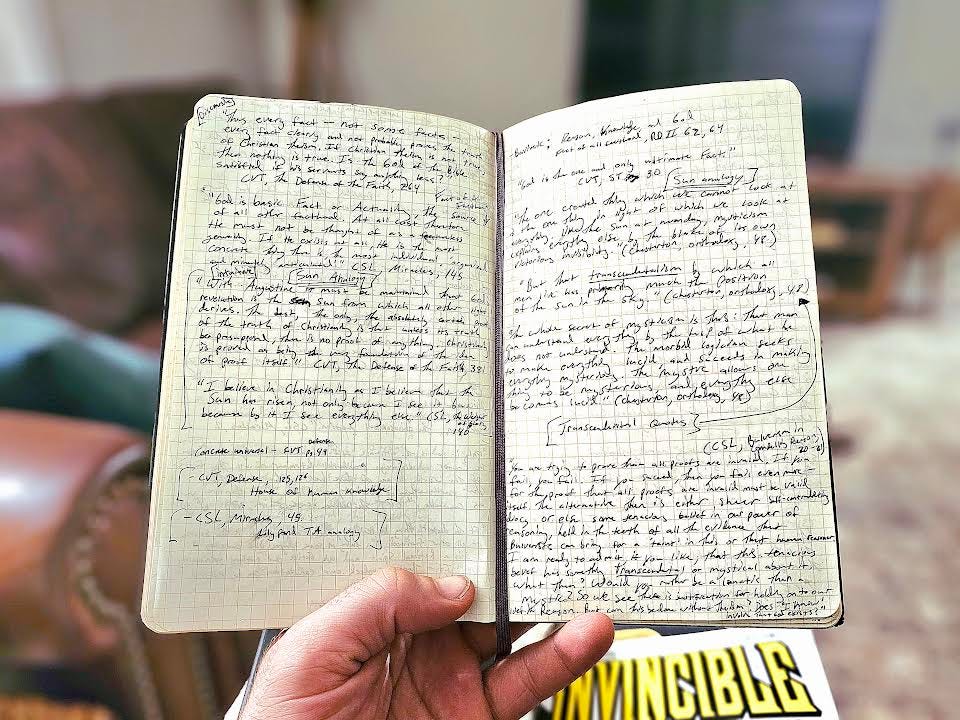 "Thus every fact — not some facts —
every fact clearly and not probably proves the truth
of Christian theism. If Christian theism is not true
then nothing is true. Is the God of the Bible
satisfied if his servants say anything less?"
CVT, The Defense of the Faith, 264
"God is basic Fact or Actuality, the source
of all other facthood. At all cost therefore
He must not be thought of as a featureless
generality. If He exists at all, He is the most
concrete thing there is the most individual, organised
and minutely articulated" CSL, Miracles, 145
[Sun Analogy]
"With Augustine it must be maintained that God's
revelation is the sun from which all other light
derives. The best, the only, the absolutely certain proof
of the truth of Christianity is that unless its truth
be presupposed, there is no proof of anything. Christianity
is proved as being the very foundation of the idea
of proof itself". CVT, The Defense of the Faith, 381
"I believe in Christianity as I believe that the
Sun has risen, not only because I see it but
because by it I see everything else" (CSL, the weight
of glory,
140
Defense
Concrete universal - CVT pg 49
- CVT, Defense, 125, 126
House of Human Knowledge
- CSL, Miracles 45.
Lilypond TA analogy
Reason, Knowledge, and God
Fact of all 62, 64
"God is the one and only ultimate Fact."
CVT, 30
[Sun analogy]
"The one created thing which we cannot look at
is the one thing in light of which we look at
everything. Like the Sun at noonday, mysticism
explains everything else by the blaze of its own
victorious invisibility." (Chesterton, orthodoxy, 48.)
"But that transcendentalism by which all
men live has primarily much the position
of the sun in the sky" (Chesterton, orthodoxy, 48)
The whole secret of mysticism is this: that man
can understand everything by the help of what he
does not understand. The morbid logician seeks
to make everything lucid and succeeds in making
everything mysterious. The mystic allows one
thing to be mysterious, and everything else
becomes lucid" (Chesterton, orthodoxy, 48)
[Transcendental Quotes]
(CSL, Bulverism in
You are trying to prove that all proofs are invalid. If you
fail, you fail. If you succeed, then you fail even more -
for the proof that all proofs are invalid must be valid
itself. The alternative then is either sheer self-contradicting
idiocy or else some tenacious belief in our power of
reasoning, held in the teeth of all the evidence that
Bulverists can bring for a 'taint' in this or that human reasoner.
I am ready to admit, if you like, that this tenacious
belief has something transcendental or mystical about it.
What then? Would you rather be a lunatic than a
mystic? So we see there is justification for holding on to our
Reason. But can this be done without theism? Does "I know"
involve that God exists?"
INVINCIBLE